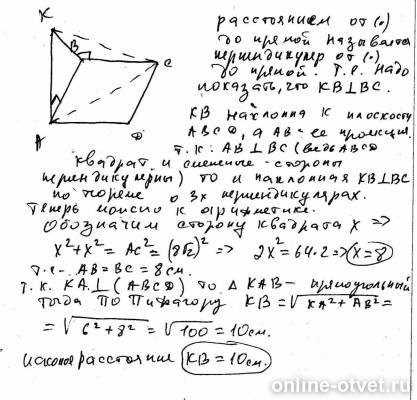 K
B
C
A
D
расстоянием от (.)
до прямой называется
перпендикуляр от (.)
до прямой. т.е. надо
показать, что KB⊥BC.
KB наклонна к плоскости
ABCD, а AB - ее проекция.
т.к. AB⊥BC (ведь ABCD
квадрат и смежные стороны
перпендикулярны) то и наклонная KB⊥BC
по теореме о 3х перпендикулярах.
Теперь можно к арифметике.
Обозначим сторону квадрата x =>
x²+x² = AC² = (8√2)² => 2x² = 64·2 => x=8
т.е. AB=BC = 8см.
т.к. KA⊥(ABCD) то Δ KAB - прямоугольный
тогда по Пифагору KB = √KA²+AB² =
= √6²+8² = √100 = 10см.
искомое расстояние KB = 10см.
online-otvet.ru